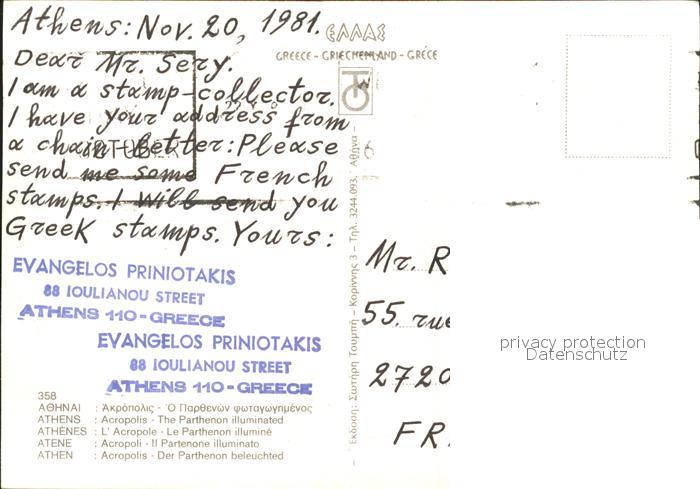 Athens: Nov. 20, 1981.
Dear Mr. Sery.
I am a stamp-collector.
I have your address from
a chain-letter: Please
send me some French
stamps. I will send you
Greek stamps. Yours:
EVANGELOS PRINIOTAKIS
88 IOULIANOU STREET
ATHENS 110-GREECE
EVANGELOS PRINIOTAKIS
88 IOULIANOU STREET
ATHENS 110-GREECE
358
ΑΘΗΝΑΙ : Ἀκρόπολις - Ὁ Παρθενών φωταγωγημένος
ATHENS : Acropolis - The Parthenon illuminated
ATHÈNES : L' Acropole - Le Parthenon illuminé
ATENE : Acropoli - Il Partenone illuminato
ATHEN : Acropolis - Der Parthenon beleuchtet
ΕΛΛΑΣ
GREECE - GRIECHENLAND - GRÈCE
Ἔκδοση: Σωτήρη Τουμπή - Κορίννης 3 - Τηλ. 3244.093, Ἀθήνα
Mr. R
55. rue
2720
FR.
privacy protection
Datenschutz